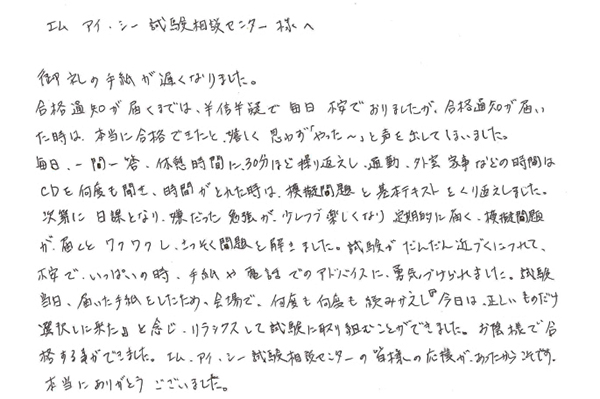 エム アイ・シー 試験相談センター 様へ
御礼の手紙が遅くなりました。
合格通知が届くまでは、半信半疑で毎日 不安でおりましたが、合格通知が届い
た時は、本当に合格できたと、嬉しく 思わず「やった〜」と声を出してしまいました。
毎日、一問一答、休憩時間に、30分ほど繰り返えし、通勤、外出 家事などの時間は
CDを何度も聞き、時間がとれた時は、模擬問題と基本テキストをくり返えしました。
次第に 日課となり、嫌だった勉強が、少しづつ楽しくなり 定期的に届く、模擬問題
が、届くと ワクワクし、さっそく問題を解きました。試験が だんだん近づくにつれて、
不安で、いっぱいの時、手紙や 電話 でのアドバイスに、勇気づけられました。試験
当日、届いた手紙をしたため、会場で、何度も何度も 読みかえし『今日は、正しいものだけ
選択しに来た』と感じ、リラックスして試験に取り組むことができました。お陰様で合
格する事ができました。エム、アイ、シー 試験相談センターの皆様の応援が、あったからこそです。
本当にありがとう ございました。